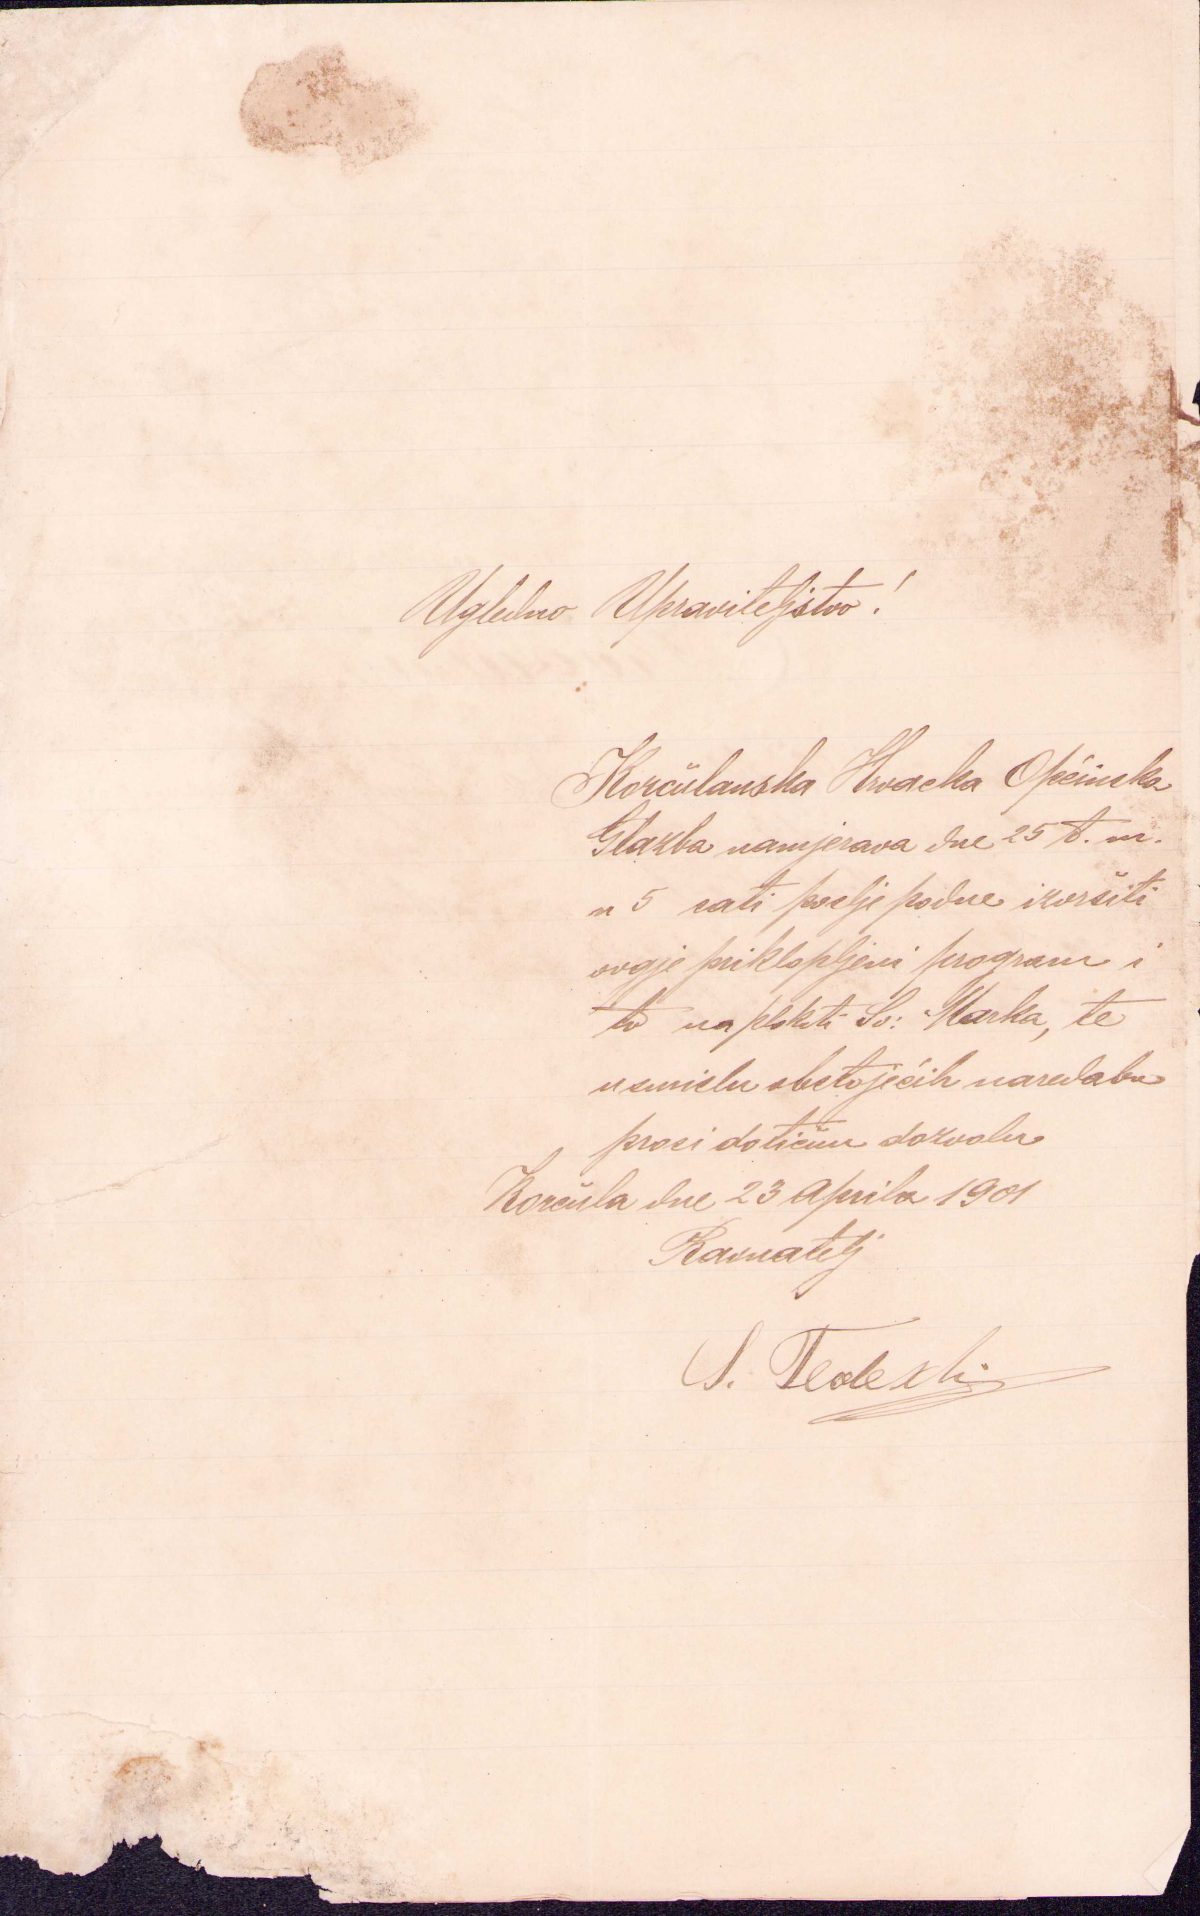 Ugledno Upraviteljstvo!
Korčulanska Hrvacka Općinska
Glazba namjerava dne 25 t. m.
u 5 sati poslje podne izvršiti
ovgje priklopljeni program i
to na plokiti Sv: Marka, te
u smislu obstojećih naredaba
prosi dotičnu dozvolu
Korčula dne 23 Aprila 1901
Ravnatelj
S. Tedeschi